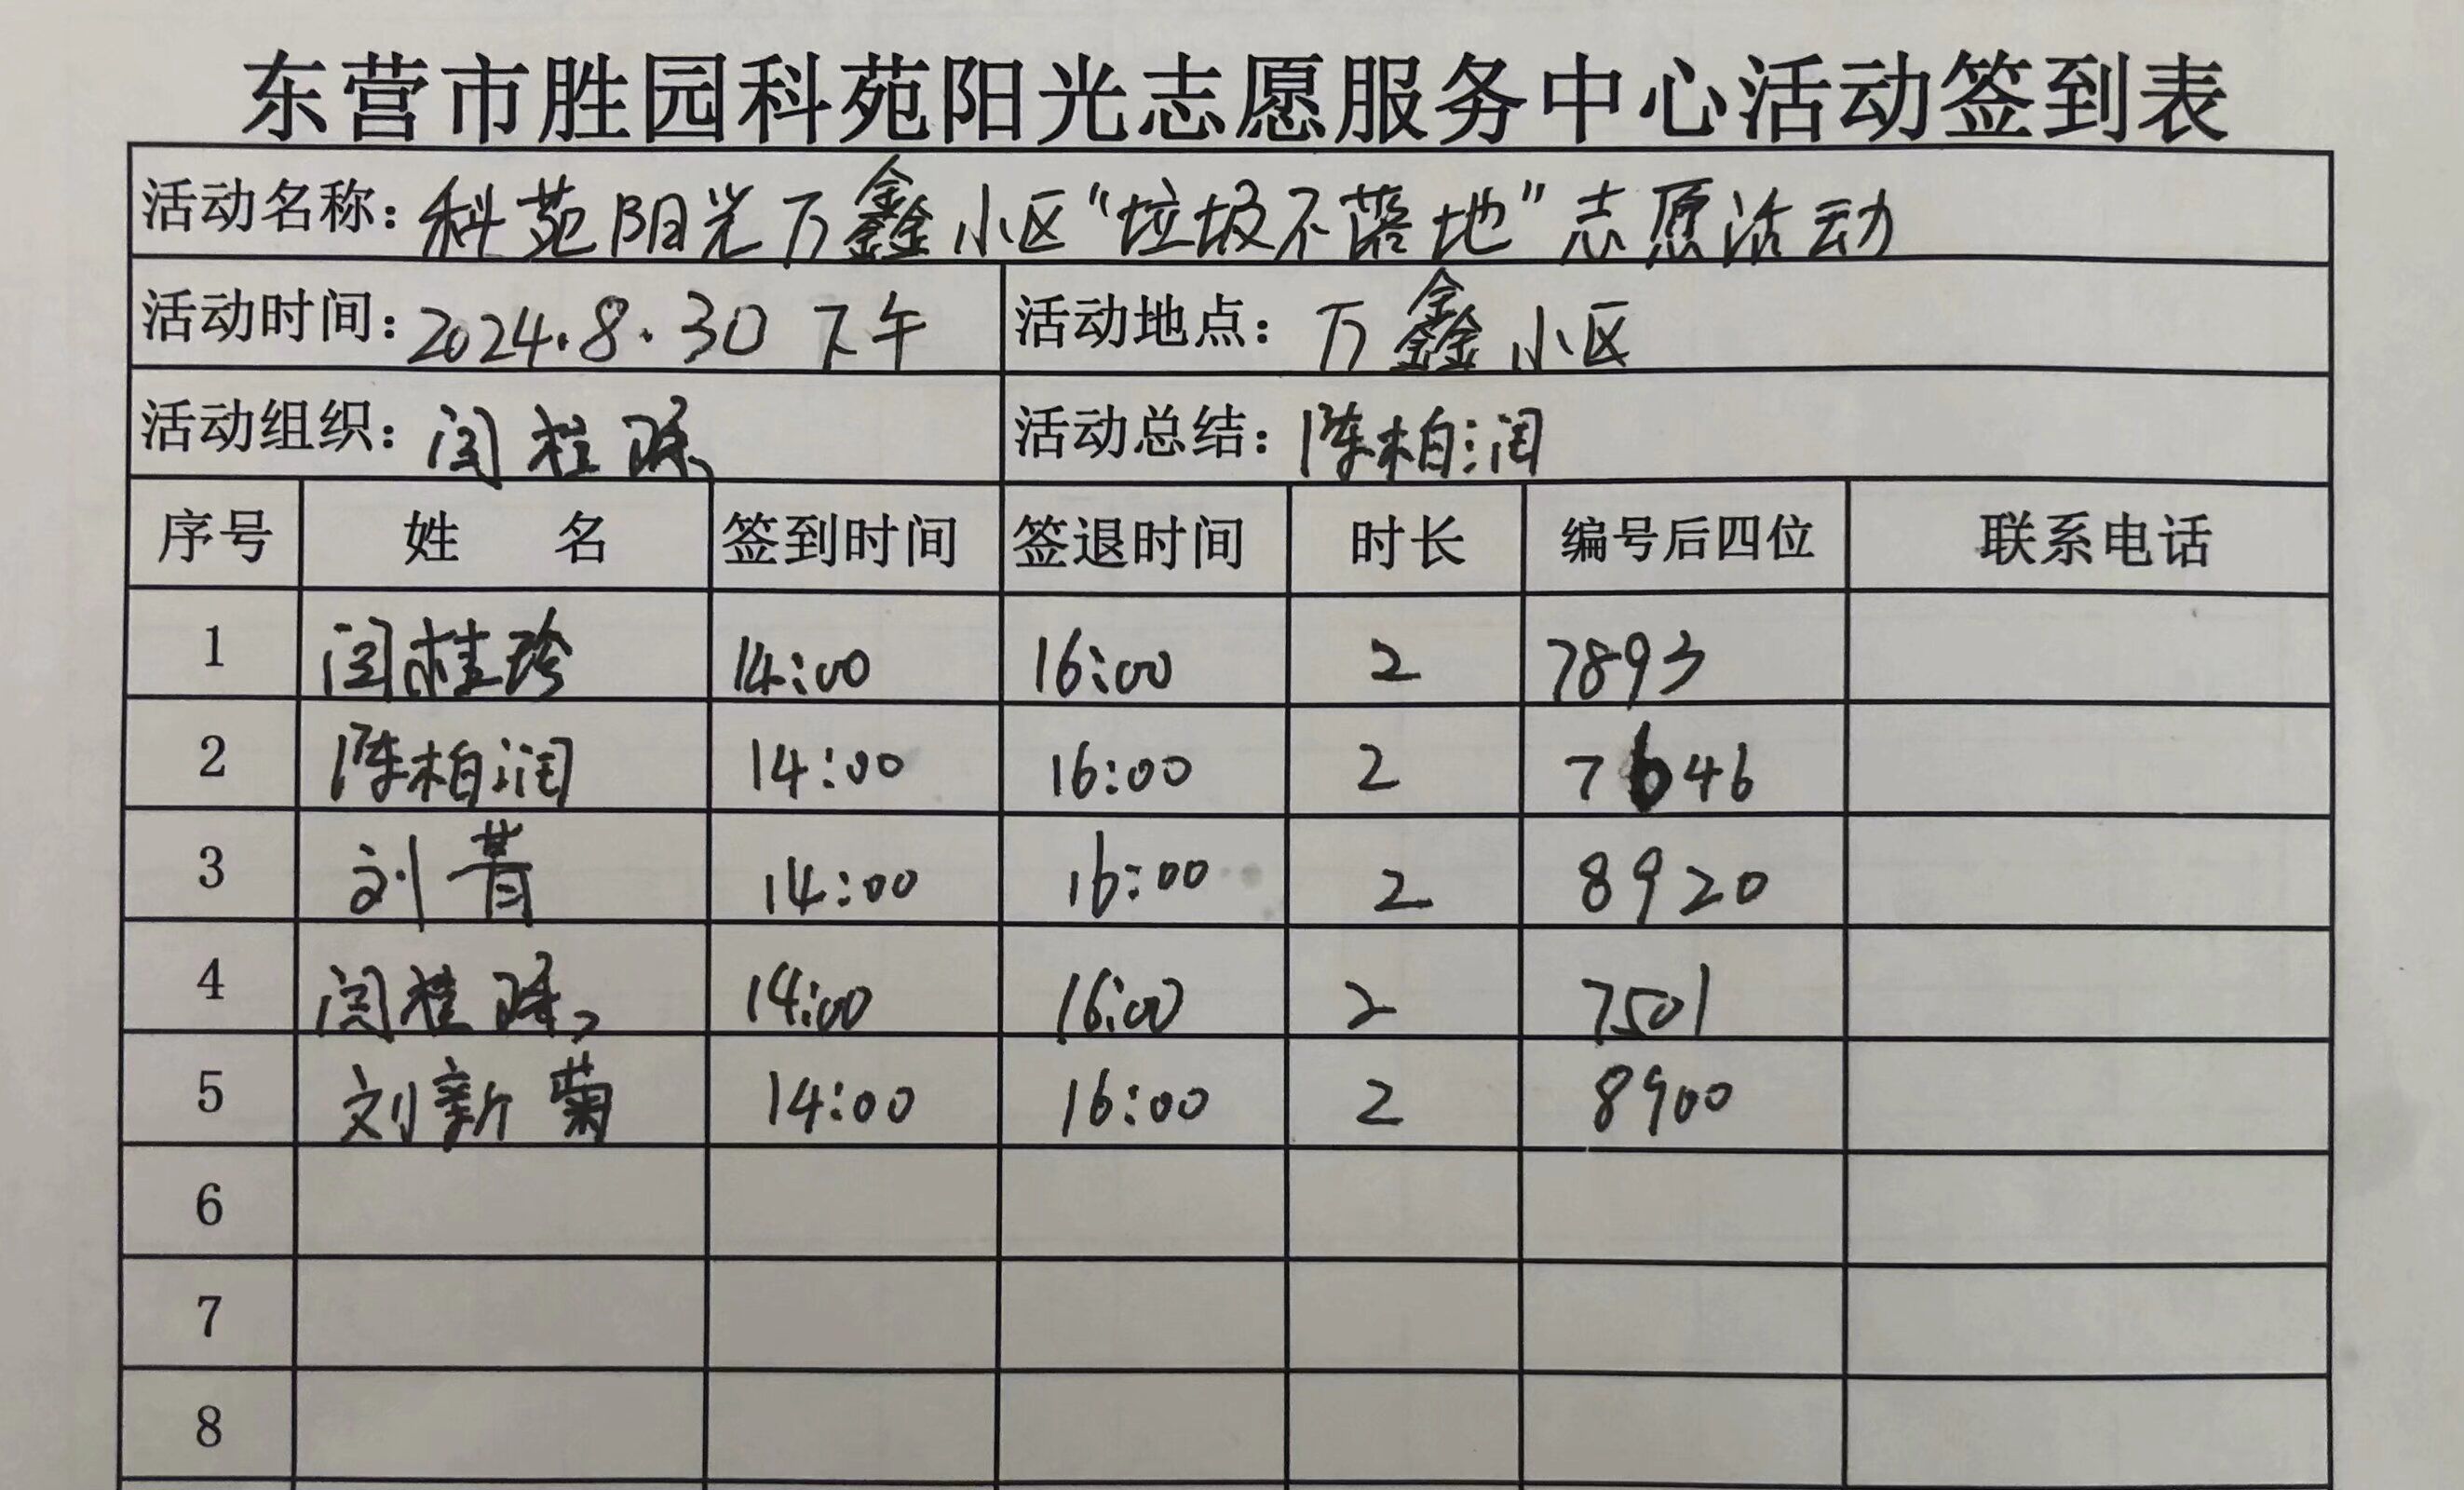 东营市胜园科苑阳光志愿服务中心活动签到表
活动名称：科苑阳光万鑫小区“垃圾不落地”志愿活动
活动时间：2024.8.30 下午 活动地点：万鑫小区
活动组织：闫桂 活动总结：陈柏润
序号 姓 名 签到时间 签退时间 时长 编号后四位 联系电话
1 闫桂珍 14:00 16:00 2 7893
2 陈柏润 14:00 16:00 2 7646
3 刘菁 14:00 16:00 2 8920
4 闫桂 14:00 16:00 2 7501
5 刘新菊 14:00 16:00 2 8900
6
7
8